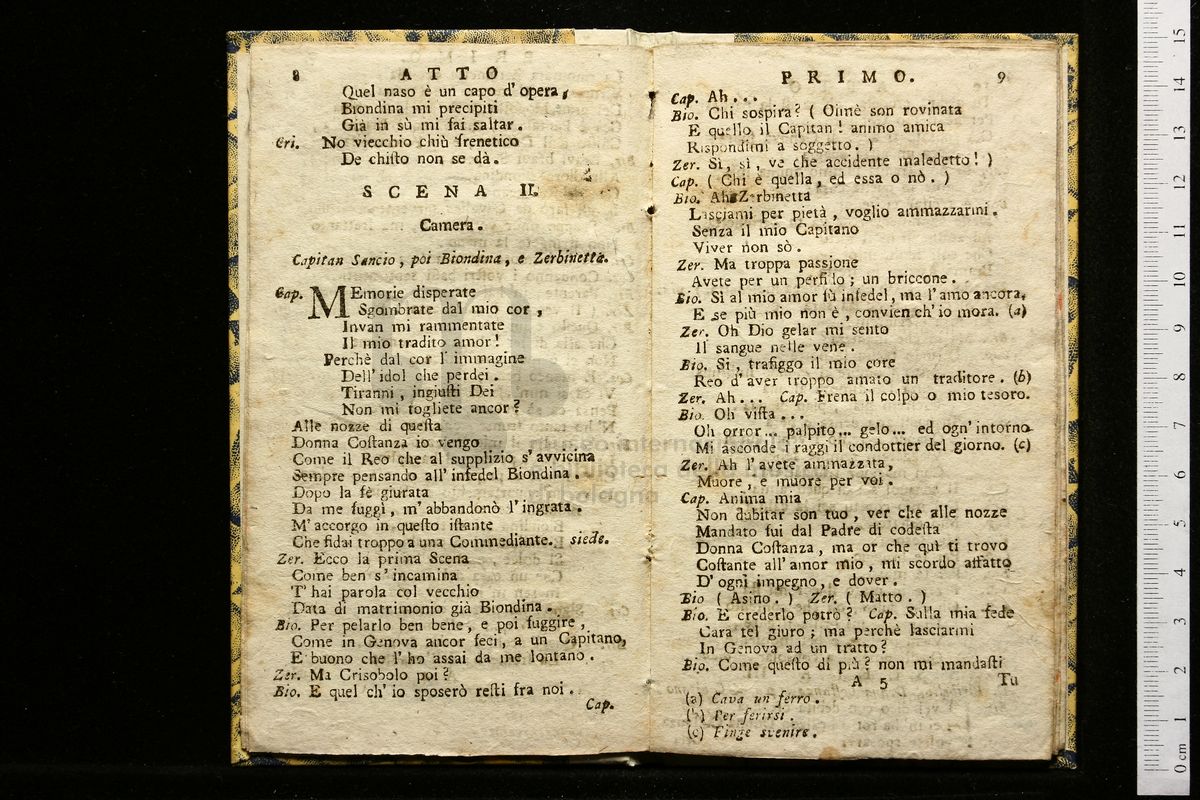 8 ATTO
Quel naso è un capo d'opera,
Biondina mi precipiti
Già in sù mi fai saltar.
Cri. No viecchio chiù frenetico
De chisto non se dà.
SCENA II.
Camera.
Capitan Sancio, poi Biondina, e Zerbinetta.
Cap. MEmorie disperate
Sgombrate dal mio cor,
Invan mi rammentate
Il mio tradito amor!
Perchè dal cor l'immagine
Dell'idol che perdei.
Tiranni, ingiusti Dei
Non mi togliete ancor?
Alle nozze di questa
Donna Costanza io vengo
Come il Reo che al supplizio s'avvicina
Sempre pensando all'infedel Biondina.
Dopo la fè giurata
Da me fuggì, m'abbandonò l'ingrata.
M'accorgo in questo istante
Che fidai troppo a una Commediante. siede.
Zer. Ecco la prima Scena
Come ben s'incamina
T'hai parola col vecchio
Data di matrimonio già Biondina.
Bio. Per pelarlo ben bene, e poi fuggire,
Come in Genova ancor feci, a un Capitano,
E buono che l'ho assai da me lontano.
Zer. Ma Crisobolo poi?
Bio. E quel ch'io sposerò resti fra noi.
Cap.
PRIMO. 9
Cap. Ah...
Bio. Chi sospira? ( Oimè son rovinata
E quello il Capitan! animo amica
Rispondimi a soggetto. )
Zer. Sì, sì, ve che accidente maledetto! )
Cap. ( Chi è quella, ed essa o nò. )
Bio. Ah Zerbinetta
Lasciami per pietà, voglio ammazzarmi.
Senza il mio Capitano
Viver non sò.
Zer. Ma troppa passione
Avete per un perfido; un briccone.
Bio. Sì al mio amor fù infedel, ma l'amo ancora,
E se più mio non è, convien ch'io mora. (a)
Zer. Oh Dio gelar mi sento
Il sangue nelle vene.
Bio. Si, trafiggo il mio core
Reo d'aver troppo amato un traditore. (b)
Zer. Ah... Cap. Frena il colpo o mio tesoro.
Bio. Oh vista...
Oh orror... palpito... gelo... ed ogn'intorno
Mi asconde i raggi il condottier del giorno. (c)
Zer. Ah l'avete ammazzata,
Muore, e muore per voi.
Cap. Anima mia
Non dubitar son tuo, ver che alle nozze
Mandato fui dal Padre di codesta
Donna Costanza, ma or che quì ti trovo
Costante all'amor mio, mi scordo affatto
D'ogni impegno, e dover.
Bio ( Asino. ) Zer. ( Matto. )
Bio. E crederlo potrò? Cap. Sulla mia fede
Cara tel giuro; ma perchè lasciarmi
In Genova ad un tratto?
Bio. Come questo di più? non mi mandasti
A 5 Tu
(a) Cava un ferro.
(b) Per ferirsi.
(c) Finge svenire.
museo internazionale
biblioteca
di bologna
0 cm 1 2 3 4 5 6 7 8 9 10 11 12 13 14 15